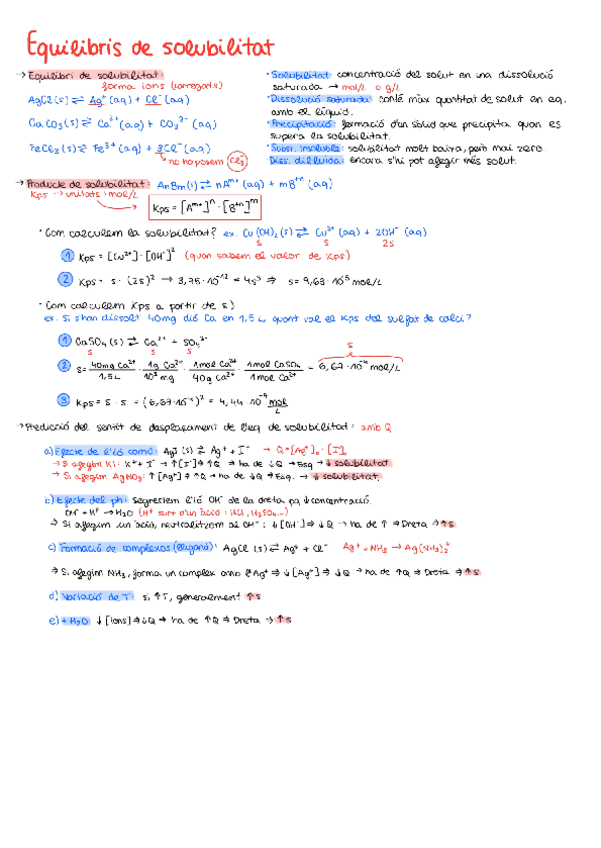 Equilibris de solubilitat
→ Equilibri de solubilitat:
forma ions (carregats)
AgCl (s) ⇌ Ag⁺ (aq) + Cl⁻ (aq)
CaCO₃ (s) ⇌ Ca²⁺ (aq) + CO₃²⁻ (aq)
FeCl₃ (s) ⇌ Fe³⁺ (aq) + 3Cl⁻ (aq)
no ho posem Cl₃⁻
· Solubilitat: concentració del solut en una dissolució
saturada → mol/L o g/L
· Dissolució saturada: conté màx quantitat de solut en eq.
amb el líquid.
· Precipitació: formació d'un sòlid que precipita quan es
supera la solubilitat.
· Subst. insoluble: solubilitat molt baixa, però mai zero.
Diss. diluida: encara s'hi pot afegir més solut.
→ Producte de solubilitat: AnBm (s) ⇌ nAᵐ⁺ (aq) + mBⁿ⁺ (aq)
Kps → unitats: mol/L
Kps = [Aᵐ⁺]ⁿ · [Bⁿ⁺]ᵐ
· Com calculem la solubilitat? ex. Cu(OH)₂ (s) ⇌ Cu²⁺ (aq) + 2OH⁻ (aq)
s s 2s
1 Kps = [Cu²⁺] · [OH⁻]² (quan sabem el valor de Kps)
2 Kps = s · (2s)² → 3,75·10⁻¹² = 4s³ ⇒ s = 9,63·10⁻⁵ mol/L
· Com calculem Kps a partir de s?
ex. Si s'han dissolt 40mg d'ió Ca en 1,5 L quant val el Kps del sulfat de calci?
1 CaSO₄ (s) ⇌ Ca²⁺ + SO₄²⁻
s s s
s
2 s = 40mg Ca²⁺/1,5 L · 1g Ca²⁺/10³ mg · 1mol Ca²⁺/40g Ca²⁺ · 1mol CaSO₄/1mol Ca²⁺ = 6,67·10⁻⁴ mol/L
3 Kps = s · s = (6,67·10⁻⁴)² = 4,44·10⁻⁷ mol/L
→ Predicció del sentit de desplaçament de l'eq de solubilitat: amb Q
a) Efecte de l'ió comú: AgI (s) ⇌ Ag⁺ + I⁻ → Q = [Ag⁺]₀ · [I⁻]
→ Si afegim KI: K⁺ + I⁻ → ↑[I⁻] → ↑Q ⇒ ha de ↓Q → Esq → ↓ solubilitat
→ Si afegim AgNO₃: ↑[Ag⁺] → ↑Q → ha de ↓Q → Esq. → ↓ solubilitat
b) Efecte del ph: Segrestem l'ió OH⁻ de la dreta pq ↓ concentració.
OH⁻ + H⁺ → H₂O (H⁺ surt d'un àcid: HCl, H₂SO₄...)
⇒ Si afegim un àcid, neutralitzem al OH⁻: ↓[OH⁻] ⇒ ↓Q → ha de ↑ ⇒ Dreta → ↑s
c) Formació de complexos (lligand): AgCl (s) ⇌ Ag⁺ + Cl⁻ Ag⁺ + NH₃ → Ag(NH₃)₂⁺
⇒ Si afegim NH₃, forma un complex amb l'Ag⁺ ⇒ ↓[Ag⁺] ⇒ ↓Q → ha de ↑Q ⇒ Dreta ⇒ ↑s
d) Variació de T: si ↑T, generalment ↑s
e) + H₂O ↓[ions] ⇒ ↓Q ⇒ ha de ↑Q ⇒ Dreta → ↑s